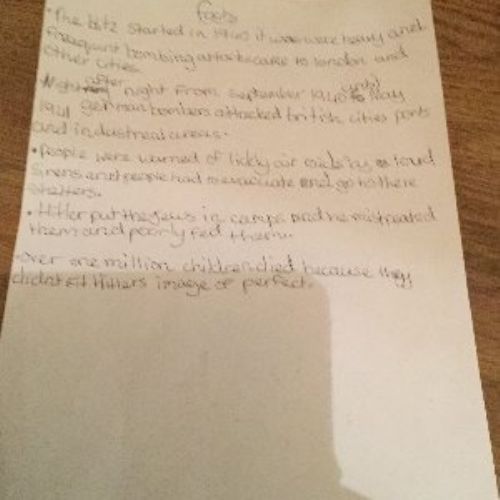 facts
• The blitz started in 1940 it was were heavy and
frequent bombing attacks came to london and
other cities
Night after night from september 1940 until May
1941 german bombers attacked british cities ports
and industreal areas.
• People were warned of likly air raids by loud
sirens and people had to evacuate and go to there
shelters.
• Hitler put the Jews in camps and he mistreated
them and poorly fed them.
• over one million children died because they
didnt fit Hitlers image of perfect.